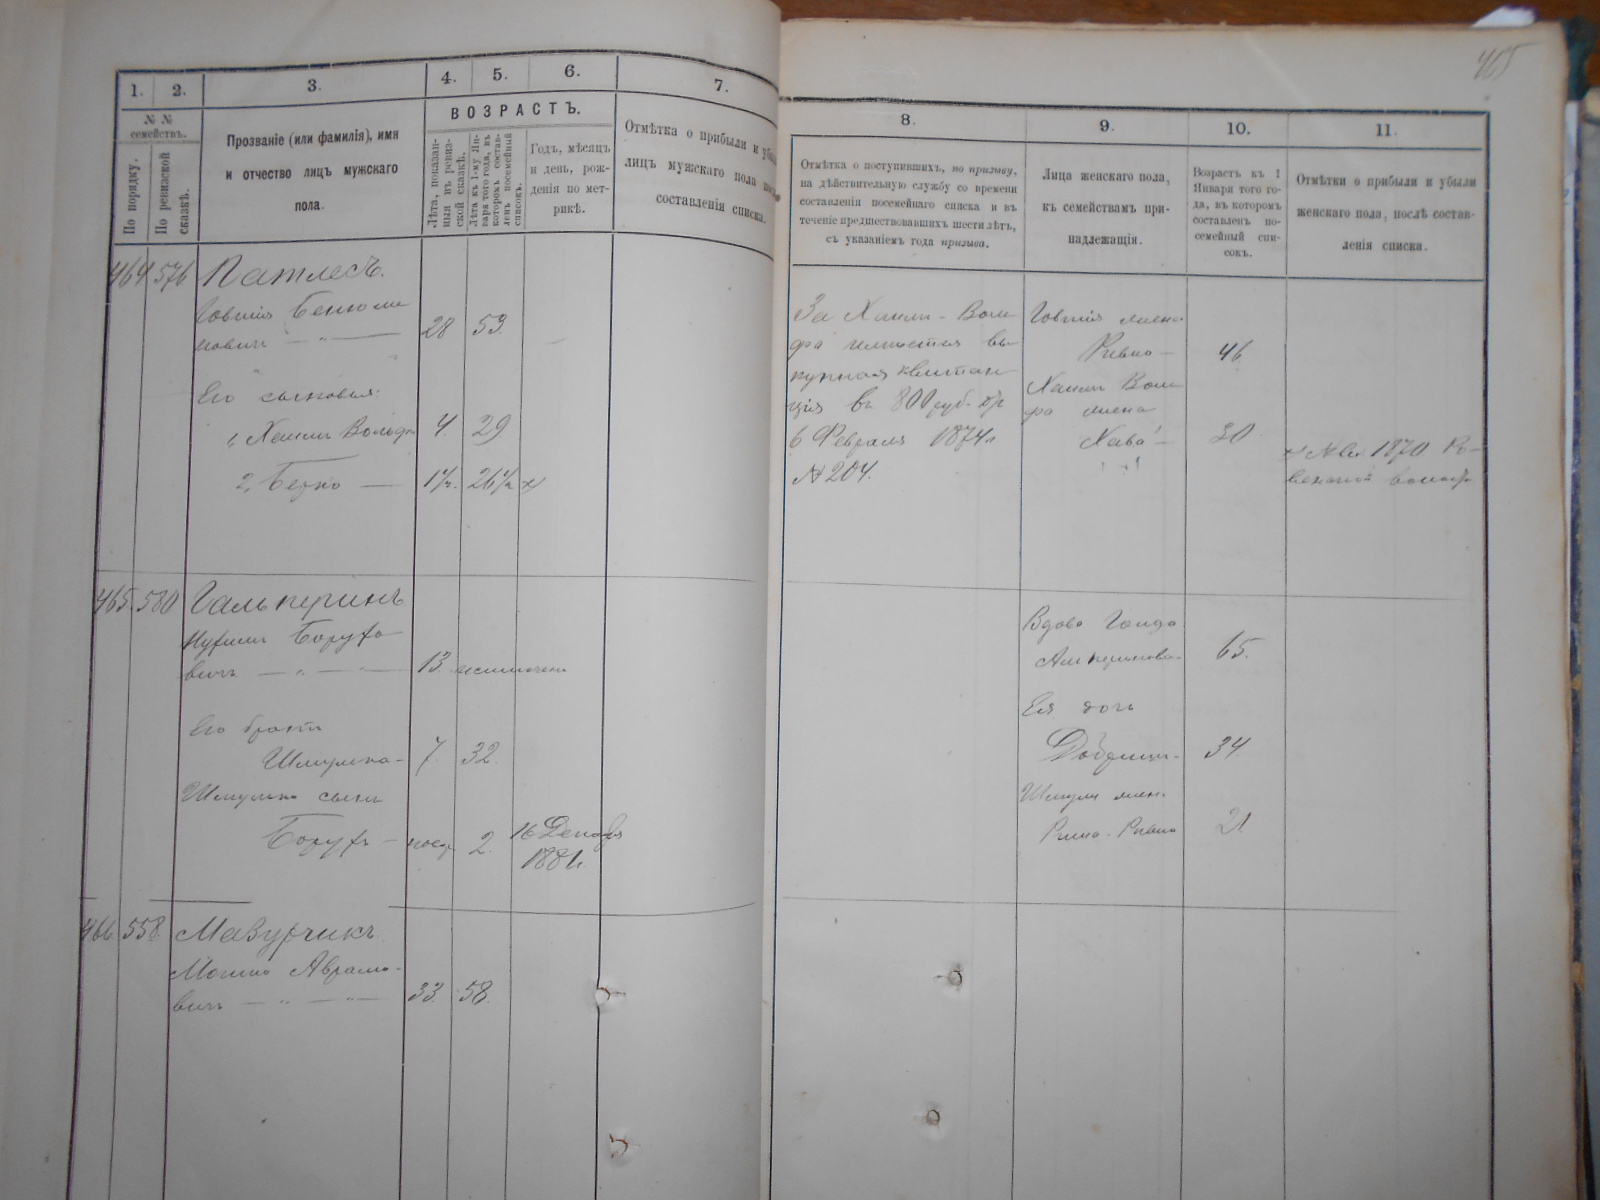 1. 2. 3. 4. 5. 6. 7.
№ № семействъ.
По порядку.
По ревизской сказкѣ.
Прозваніе (или фамилія), имя
и отчество лицъ мужскаго
пола.
ВОЗРАСТЪ.
Лѣта, показан-
ныя въ ревиз-
ской сказкѣ.
Лѣта къ 1-му Ян-
варя того года, въ
которомъ состав-
ленъ посемейный
списокъ.
Годъ, мѣсяцъ
и день, рож-
денія по мет-
рикѣ.
Отмѣтка о прибыли и убыли
лицъ мужскаго пола
составленія списка.
464 576
28 53
Его сыновья:
1, Хаимъ Вольфъ 4. 29
2, Берко 1½. 26½ х)
465. 580 Гальперинъ
Боруховичъ 13. исключенъ
Его братъ
Шмулька 7. 32.
Шмульки сынъ
Борухъ 2. 16 Декабря
1881.
466 558 Мазурчикъ
Мошко Абрамо-
вичъ 33. 58.
465
8. 9. 10. 11.
Отмѣтка о поступившихъ, по призыву,
на дѣйствительную службу со времени
составленія посемейнаго списка и въ
теченіе предшествовавшихъ шести лѣтъ,
съ указаніемъ года призыва.
Лица женскаго пола,
къ семействамъ при-
надлежащія.
Возрастъ къ 1
Января того го-
да, въ которомъ
составленъ по-
семейный спи-
сокъ.
Отмѣтки о прибыли и убыли
женскаго пола, послѣ состав-
ленія списка.
За Хаима-Воль
фа имѣется вы
купная квитан
ція въ 800 руб. отъ
6 Февраля 1874 г.
№ 204.
жена
Ривка 46
Хаима Воль
фа жена
Хава 30
1870 Ро-
венской волости
Вдова
65.
Ея дочь
34.
Шмули жена
Ривка 21